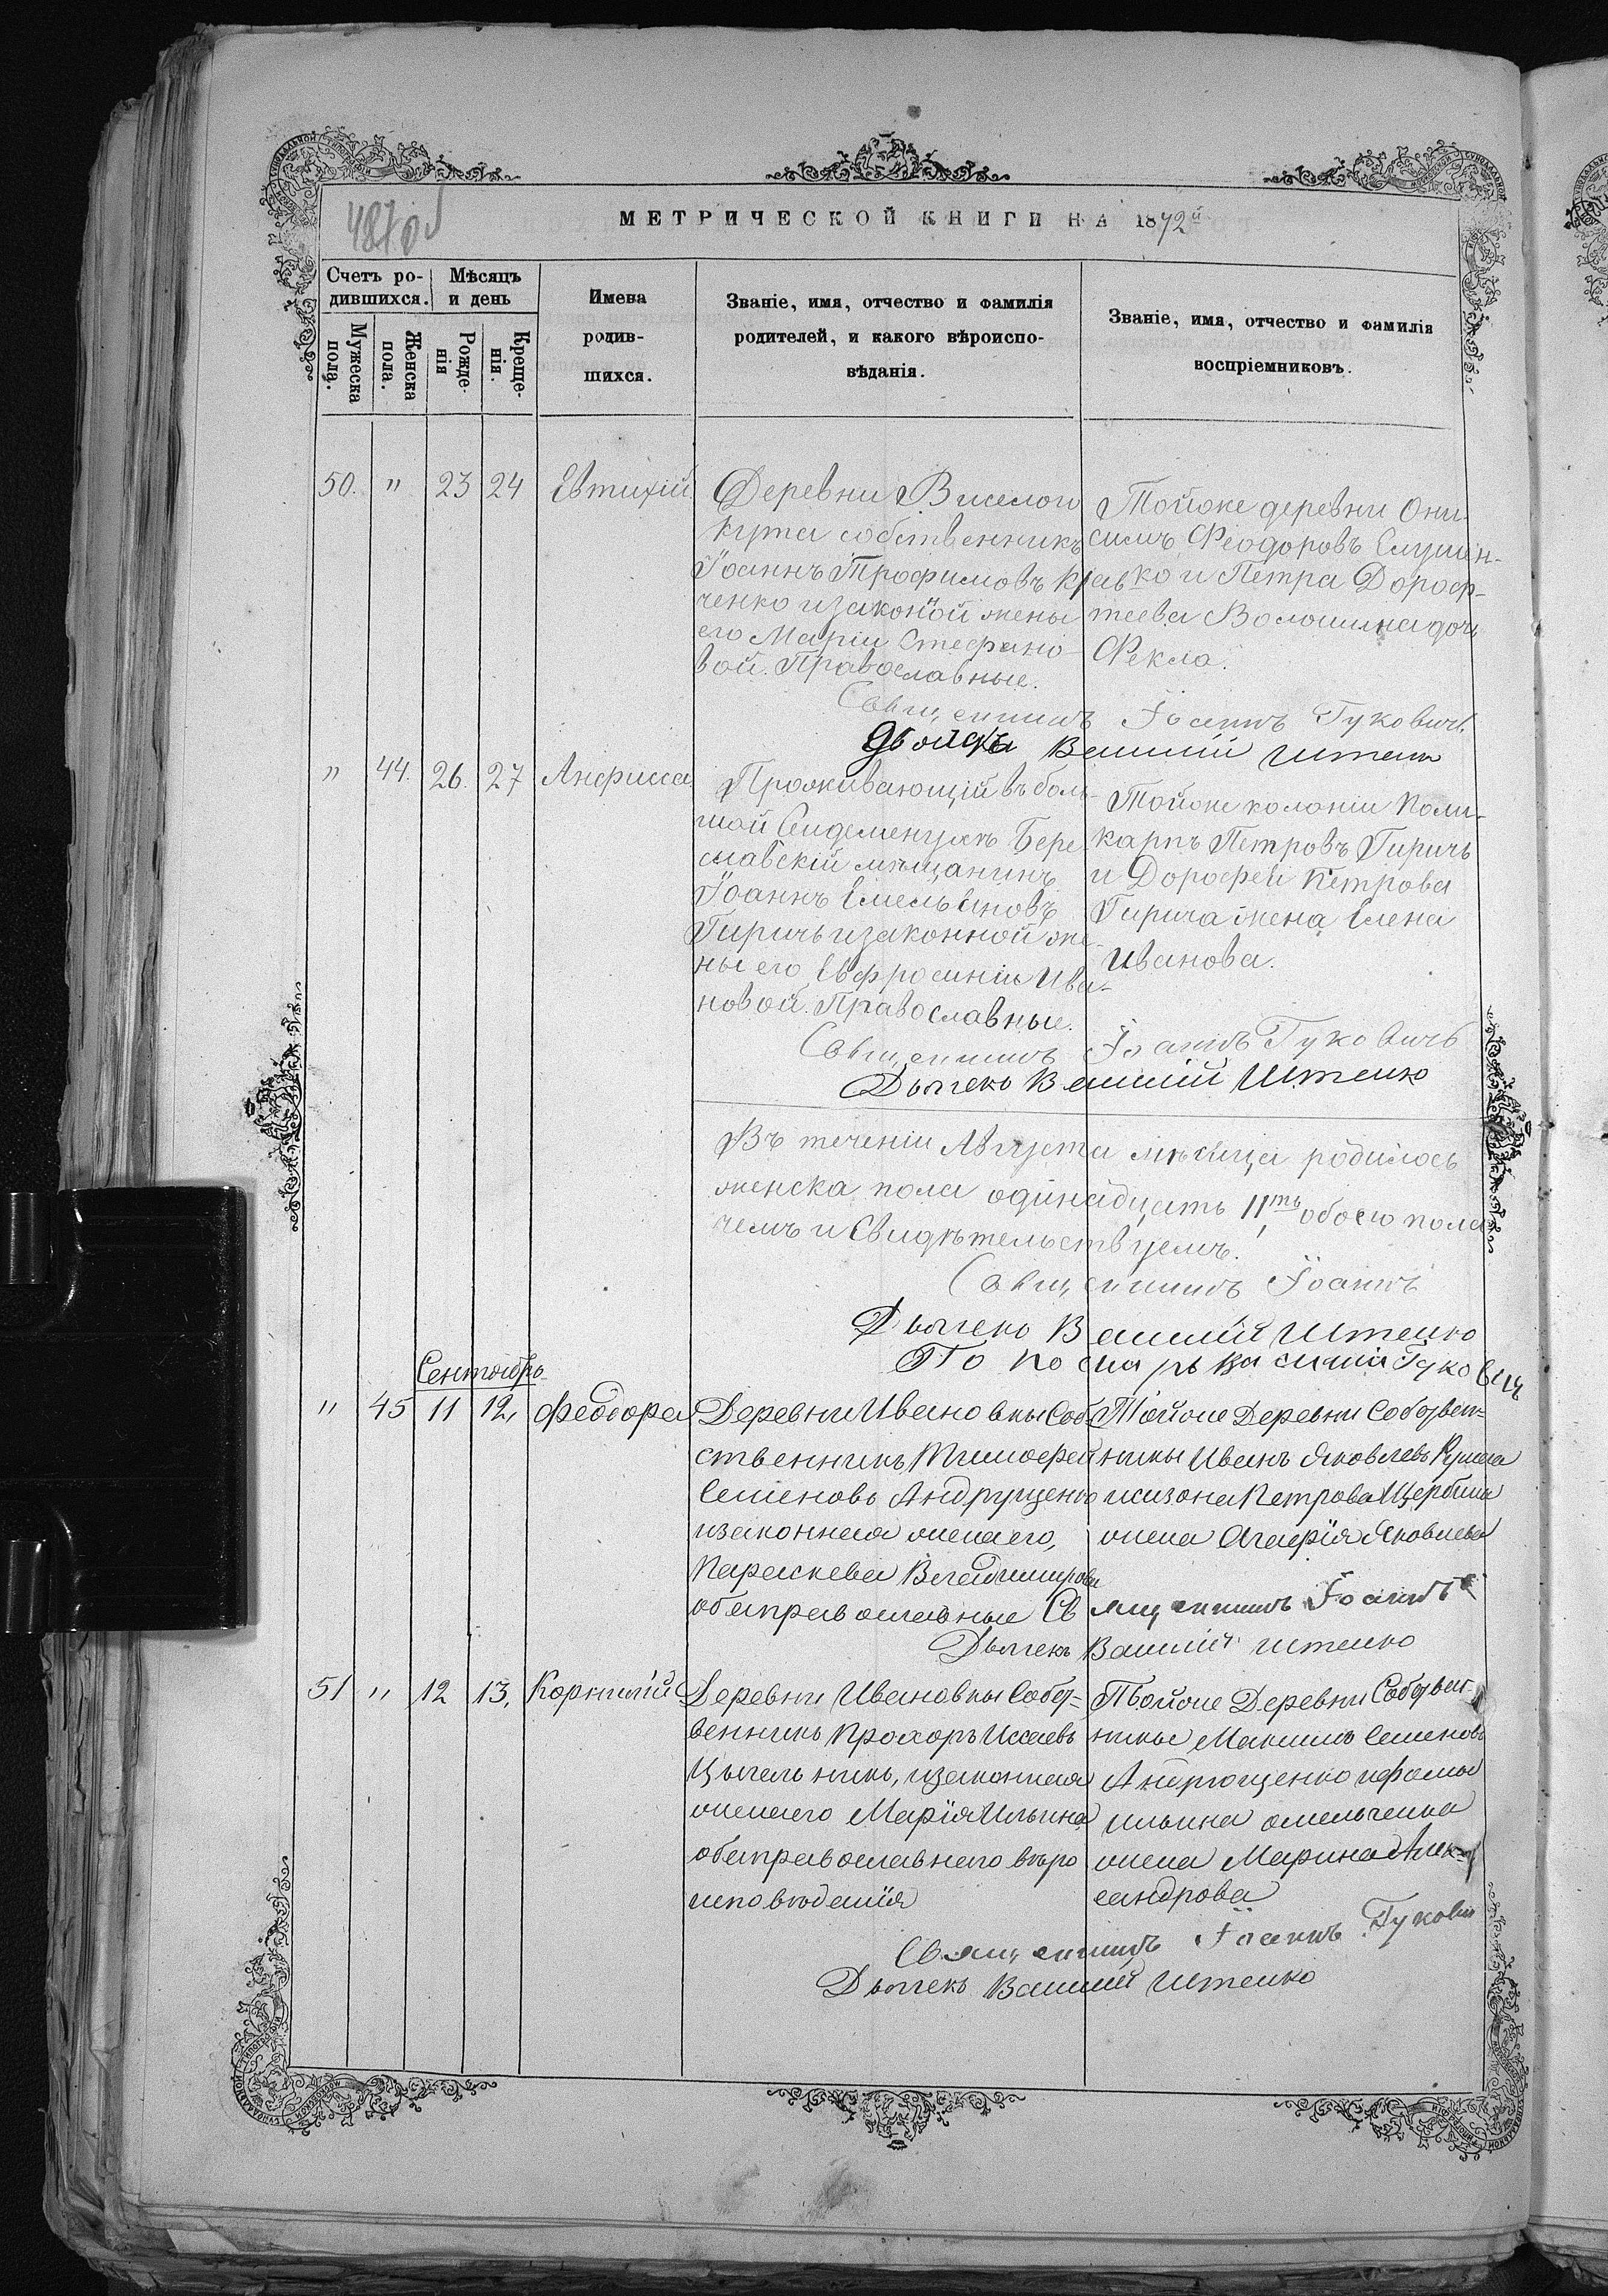 487 об
МЕТРИЧЕСКОЙ КНИГИ НА 1872й
Счетъ ро-
дившихся.
Мѣсяцъ
и день
Мужеска
пола.
Женска
пола.
Рожде-
нія
Креще-
нія.
Имена
родив-
шихся.
Званіе, имя, отчество и фамилія
родителей, и какого вѣроиспо-
вѣданія.
Званіе, имя, отчество и фамилія
воспріемниковъ.
50. " 23 24 Евтихій
Деревни
Кута собственникъ
Іоаннъ Трофимовъ Крав
ченко и законой жены
его Маріи Стефано
вой. Православные.
Тойже деревни Они-
симъ Феодоровъ
ко и Петра Дороф-
теева Волошина дочь
Фекла.
Священникъ Іоаннъ Гуковичъ
Дьячекъ Василій Итенко
" 44. 26. 27 Анфисса
Проживающій въ боль-
шой Сейдеменухъ Бере
славскій мѣщанинъ
Іоаннъ Емельяновъ
Гиричь и законной же-
ны его Евфросиніи Ива-
новой. Православные.
Тойже колоніи Поли-
карпъ Петровъ Гиричь
и Дорофей Петрова
Гирича жена Елена
Иванова.
Священникъ Іоаннъ Гуковичъ
Дьячекъ Василій Итенко
Въ теченіи Августа мѣсяца родилось
женска пола одинадцать 11ть обоего пола
чемъ и свидѣтельствуемъ.
Священникъ Іоаннъ
Дьячекъ Василій Итенко
Гуковичъ
Сентябрь
" 45 11 12, Феодора
Деревни Ивановки Соб
ственникъ Тимофей
Семеновъ Андрущенко
изаконная женаего,
Параскева Владимирова
оба православные
Тойже Деревни Собствен-
ники Иванъ Яковлевъ
Петрова Щербина
жена Агафія Яковлева
Священникъ Іоаннъ
Дьячекъ Василій Итенко
51 " 12 13, Корнилій
Деревни Ивановки Собст-
венникъ Прохоръ Исаевъ
Цыгельникъ, изаконная
женаего Марія Ильина
оба православнаго вѣро
исповѣданія
Тойже Деревни Собствен-
ники Максимъ Семеновъ
Андрющенко ифомы
ильина омельченка
жена Марина Алек-
сандрова
Священникъ Іоаннъ Гукови
Дьячекъ Василій Итенко